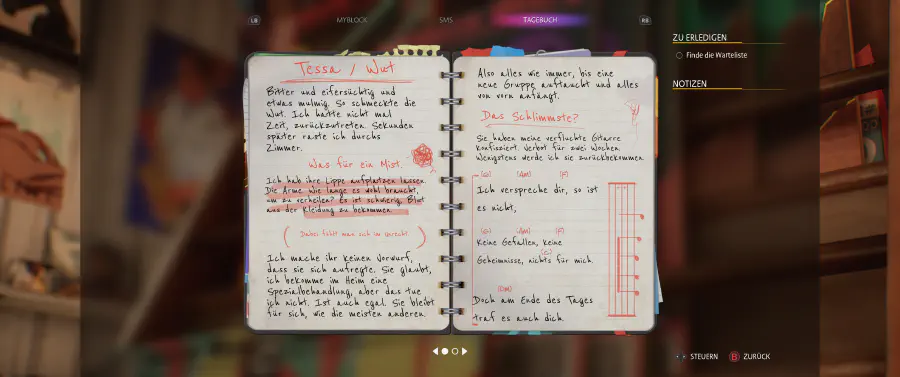 LB
MYBLOCK
SMS
TAGEBUCH
RB
ZU ERLEDIGEN
Finde die Warteliste
NOTIZEN
Tessa / Wut
Bitter und eifersüchtig und
etwas mulmig. So schmeckte die
Wut. Ich hatte nicht mal
Zeit, zurückzutreten. Sekunden
später raste ich durchs
Zimmer.
Was für ein Mist.
Ich hab ihre Lippe aufplatzen lassen.
Die Arme. Wie lange es wohl braucht,
um zu verheilen? Es ist schwierig, Blut
aus der Kleidung zu bekommen.
Dabei fühlt man sich im Unrecht.
Ich mache ihr keinen Vorwurf,
dass sie sich aufregte. Sie glaubt,
ich bekomme im Heim eine
Spezialbehandlung, aber das tue
ich nicht. Ist auch egal. Sie bleibt
für sich, wie die meisten anderen.
Also alles wie immer, bis eine
neue Gruppe auftaucht und alles
von vorn anfängt.
Das Schlimmste?
Sie haben meine verfluchte Gitarre
konfisziert. Verbot für zwei Wochen.
Wenigstens werde ich sie zurückbekommen.
(G) (Am) (F)
Ich verspreche dir, so ist
es nicht,
(G) (Am) (F)
Keine Gefallen, keine
(C)
Geheimnisse, nichts für mich.
(Dm)
Doch am Ende des Tages
traf es auch dich.
STEUERN
B ZURÜCK